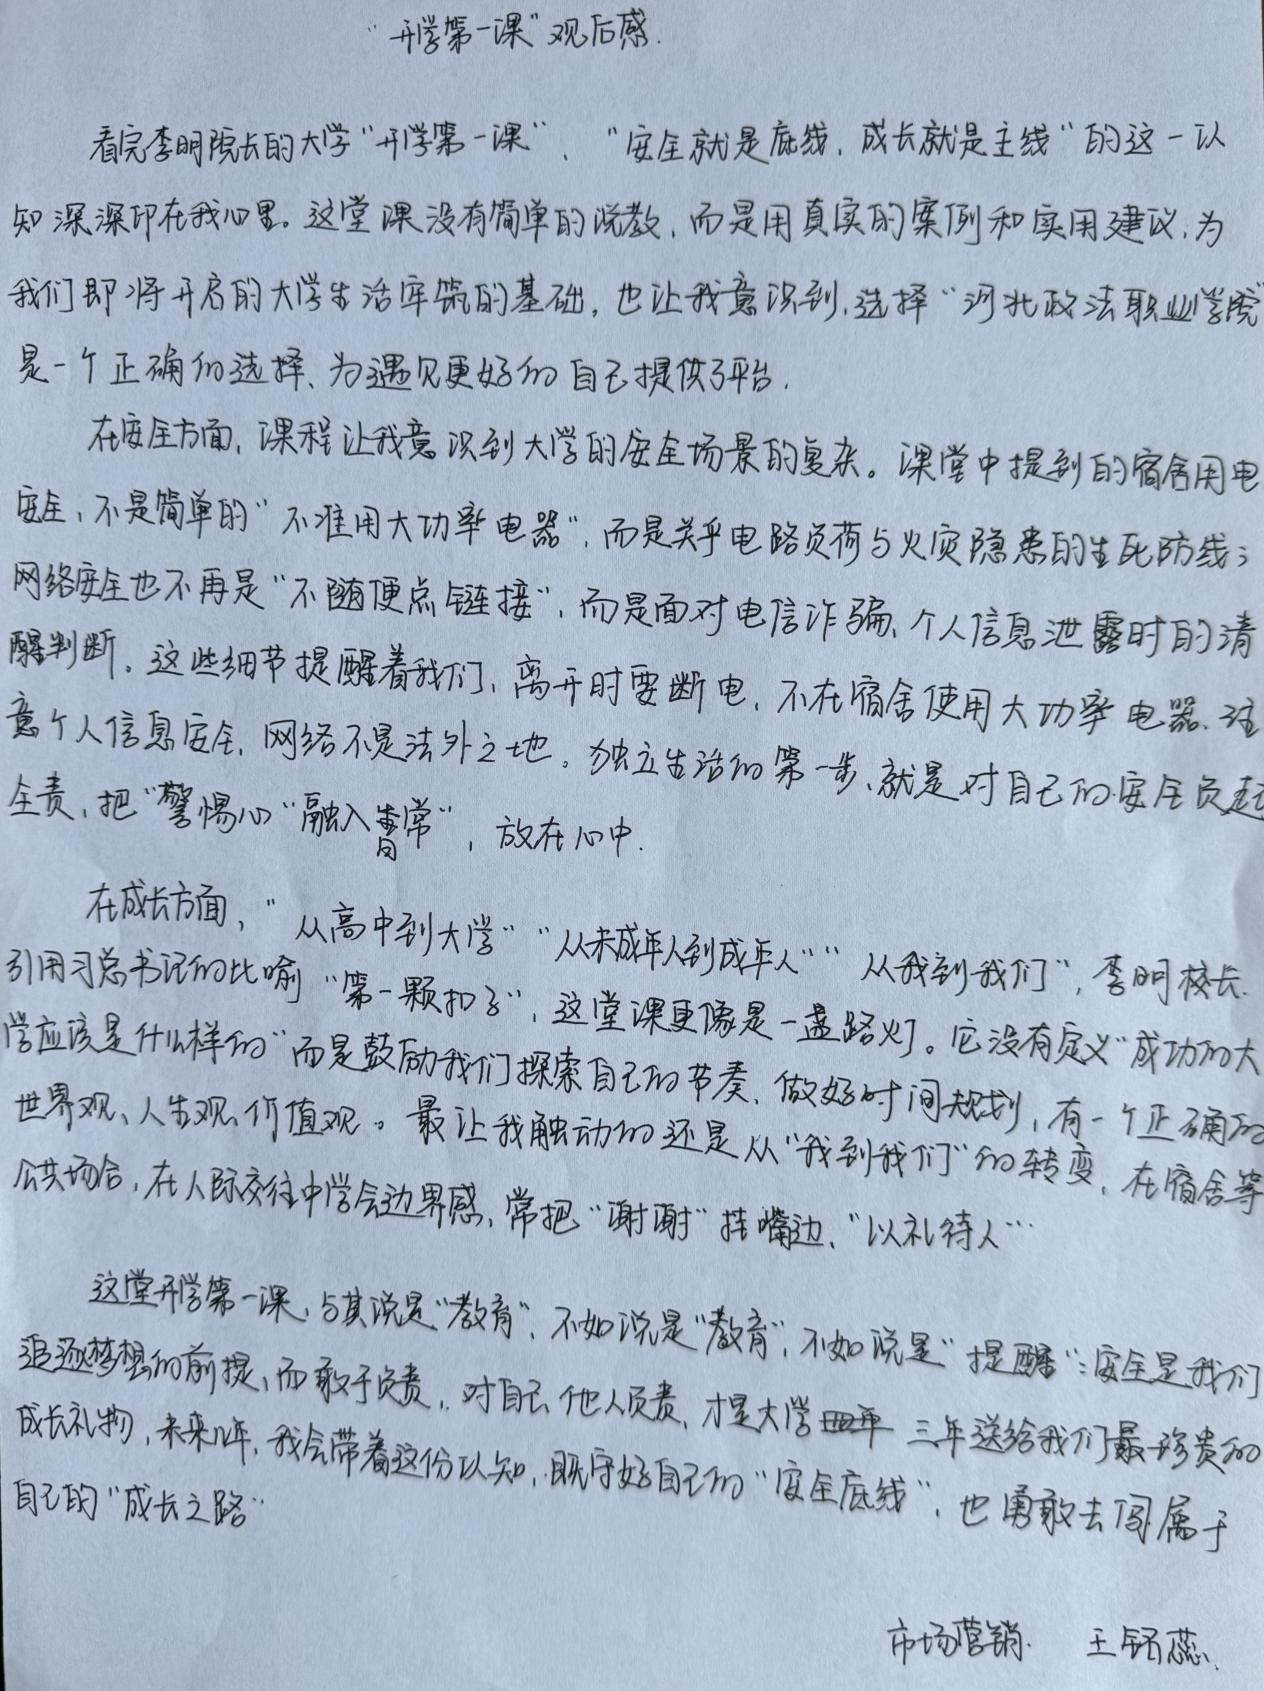 “开学第一课”观后感.
看完李明院长的大学“开学第一课”、“安全就是底线，成长就是主线”的这一认
知深深印在我心里。这堂课没有简单的说教，而是用真实的案例和实用建议，为
我们即将开启的大学生活牢筑的基础，也让我意识到，选择“河北政法职业学院”
是一个正确的选择、为遇见更好的自己提供了平台.
在安全方面，课程让我意识到大学的安全场景的复杂。课堂中提到的宿舍用电
安全，不是简单的“不准用大功率电器”，而是关乎电路负荷与火灾隐患的生死防线；
网络安全也不再是“不随便点链接”，而是面对电信诈骗、个人信息泄露时的清
醒判断。这些细节提醒着我们，离开时要断电，不在宿舍使用大功率电器、注
意个人信息安全，网络不是法外之地。独立生活的第一步、就是对自己的安全负起
全责，把“警惕心“融入日常”，放在心中.
在成长方面，“从高中到大学”“从未成年人到成年人”“从我到我们”，李明校长
引用习总书记的比喻“第一颗扣子”，这堂课更像是一盏路灯。它没有定义“成功的大
学应该是什么样的”而是鼓励我们探索自己的节奏、做好时间规划，有一个正确的
世界观、人生观、价值观。最让我触动的还是从“我到我们”的转变，在宿舍等
公共场合，在人际交往中学会边界感，常把“谢谢”挂嘴边、“以礼待人”…
这堂开学第一课，与其说是“教育”，不如说是“教育”，不如说是“提醒”：安全是我们
追逐梦想的前提，而敢于负责，对自己、他人负责，才是大学三年送给我们最珍贵的
成长礼物，未来几年，我会带着这份认知，既守好自己的“安全底线”，也勇敢去闯属于
自己的“成长之路”
市场营销. 王铭蕊.